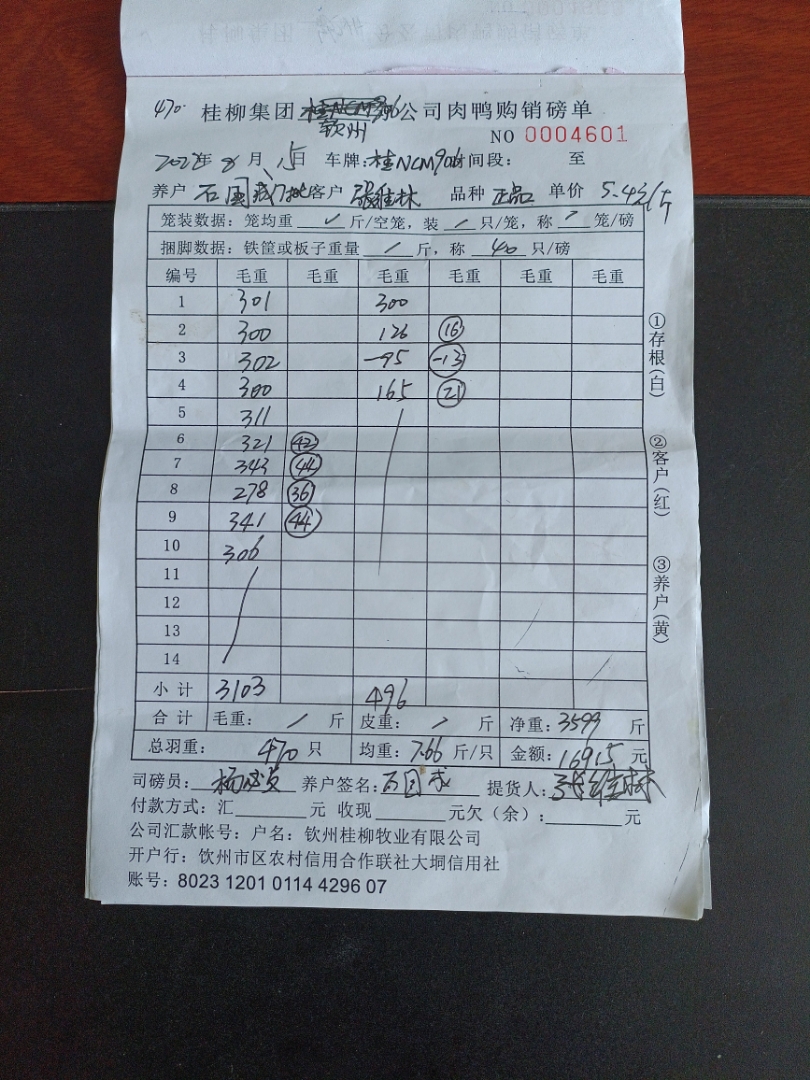 470
桂柳集团 钦州 公司肉鸭购销磅单
NO 0004601
2022年8月15日 车牌:桂NCM906 时间段: 至
养户 石国成 客户 张维林 品种 正品 单价 5.4元/斤
笼装数据：笼均重 ✓ 斤/空笼，装 / 只/笼，称 / 笼/磅
捆脚数据：铁筐或板子重量 / 斤，称 40 只/磅
编号 毛重 毛重 毛重 毛重 毛重 毛重
1 301 300
2 300 126 16
3 302 -95 -13
4 300 165 21
5 311
6 321 42
7 343 44
8 278 36
9 341 44
10 306
11
12
13
14
小计 3103 496
合计 毛重： / 斤 皮重： / 斤 净重：3599 斤
总羽重： 470 只 均重：7.66 斤/只 金额：16915 元
司磅员： 养户签名：石国成 提货人：张维林
付款方式：汇 元 收现 元欠（余）： 元
公司汇款帐号：户名：钦州桂柳牧业有限公司
开户行：钦州市区农村信用合作联社大垌信用社
账号：8023 1201 0114 4296 07
①存根(白)
②客户(红)
③养户(黄)